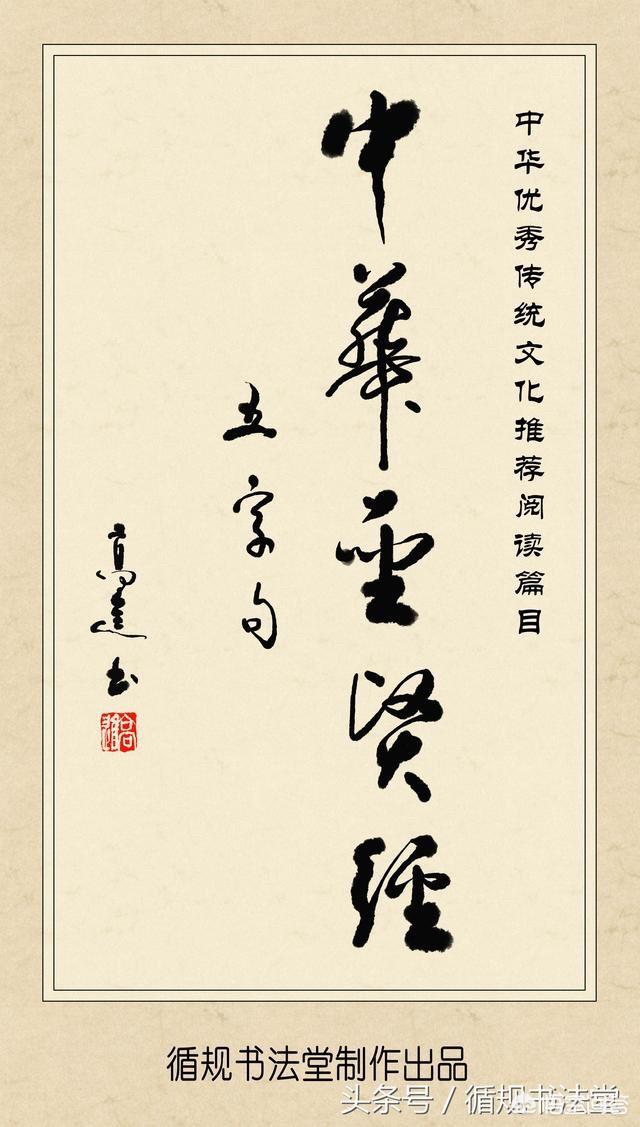 中华优秀传统文化推荐阅读篇目
中華聖賢經
五字句
高建书
循规书法堂制作出品
头条号／循规书法堂